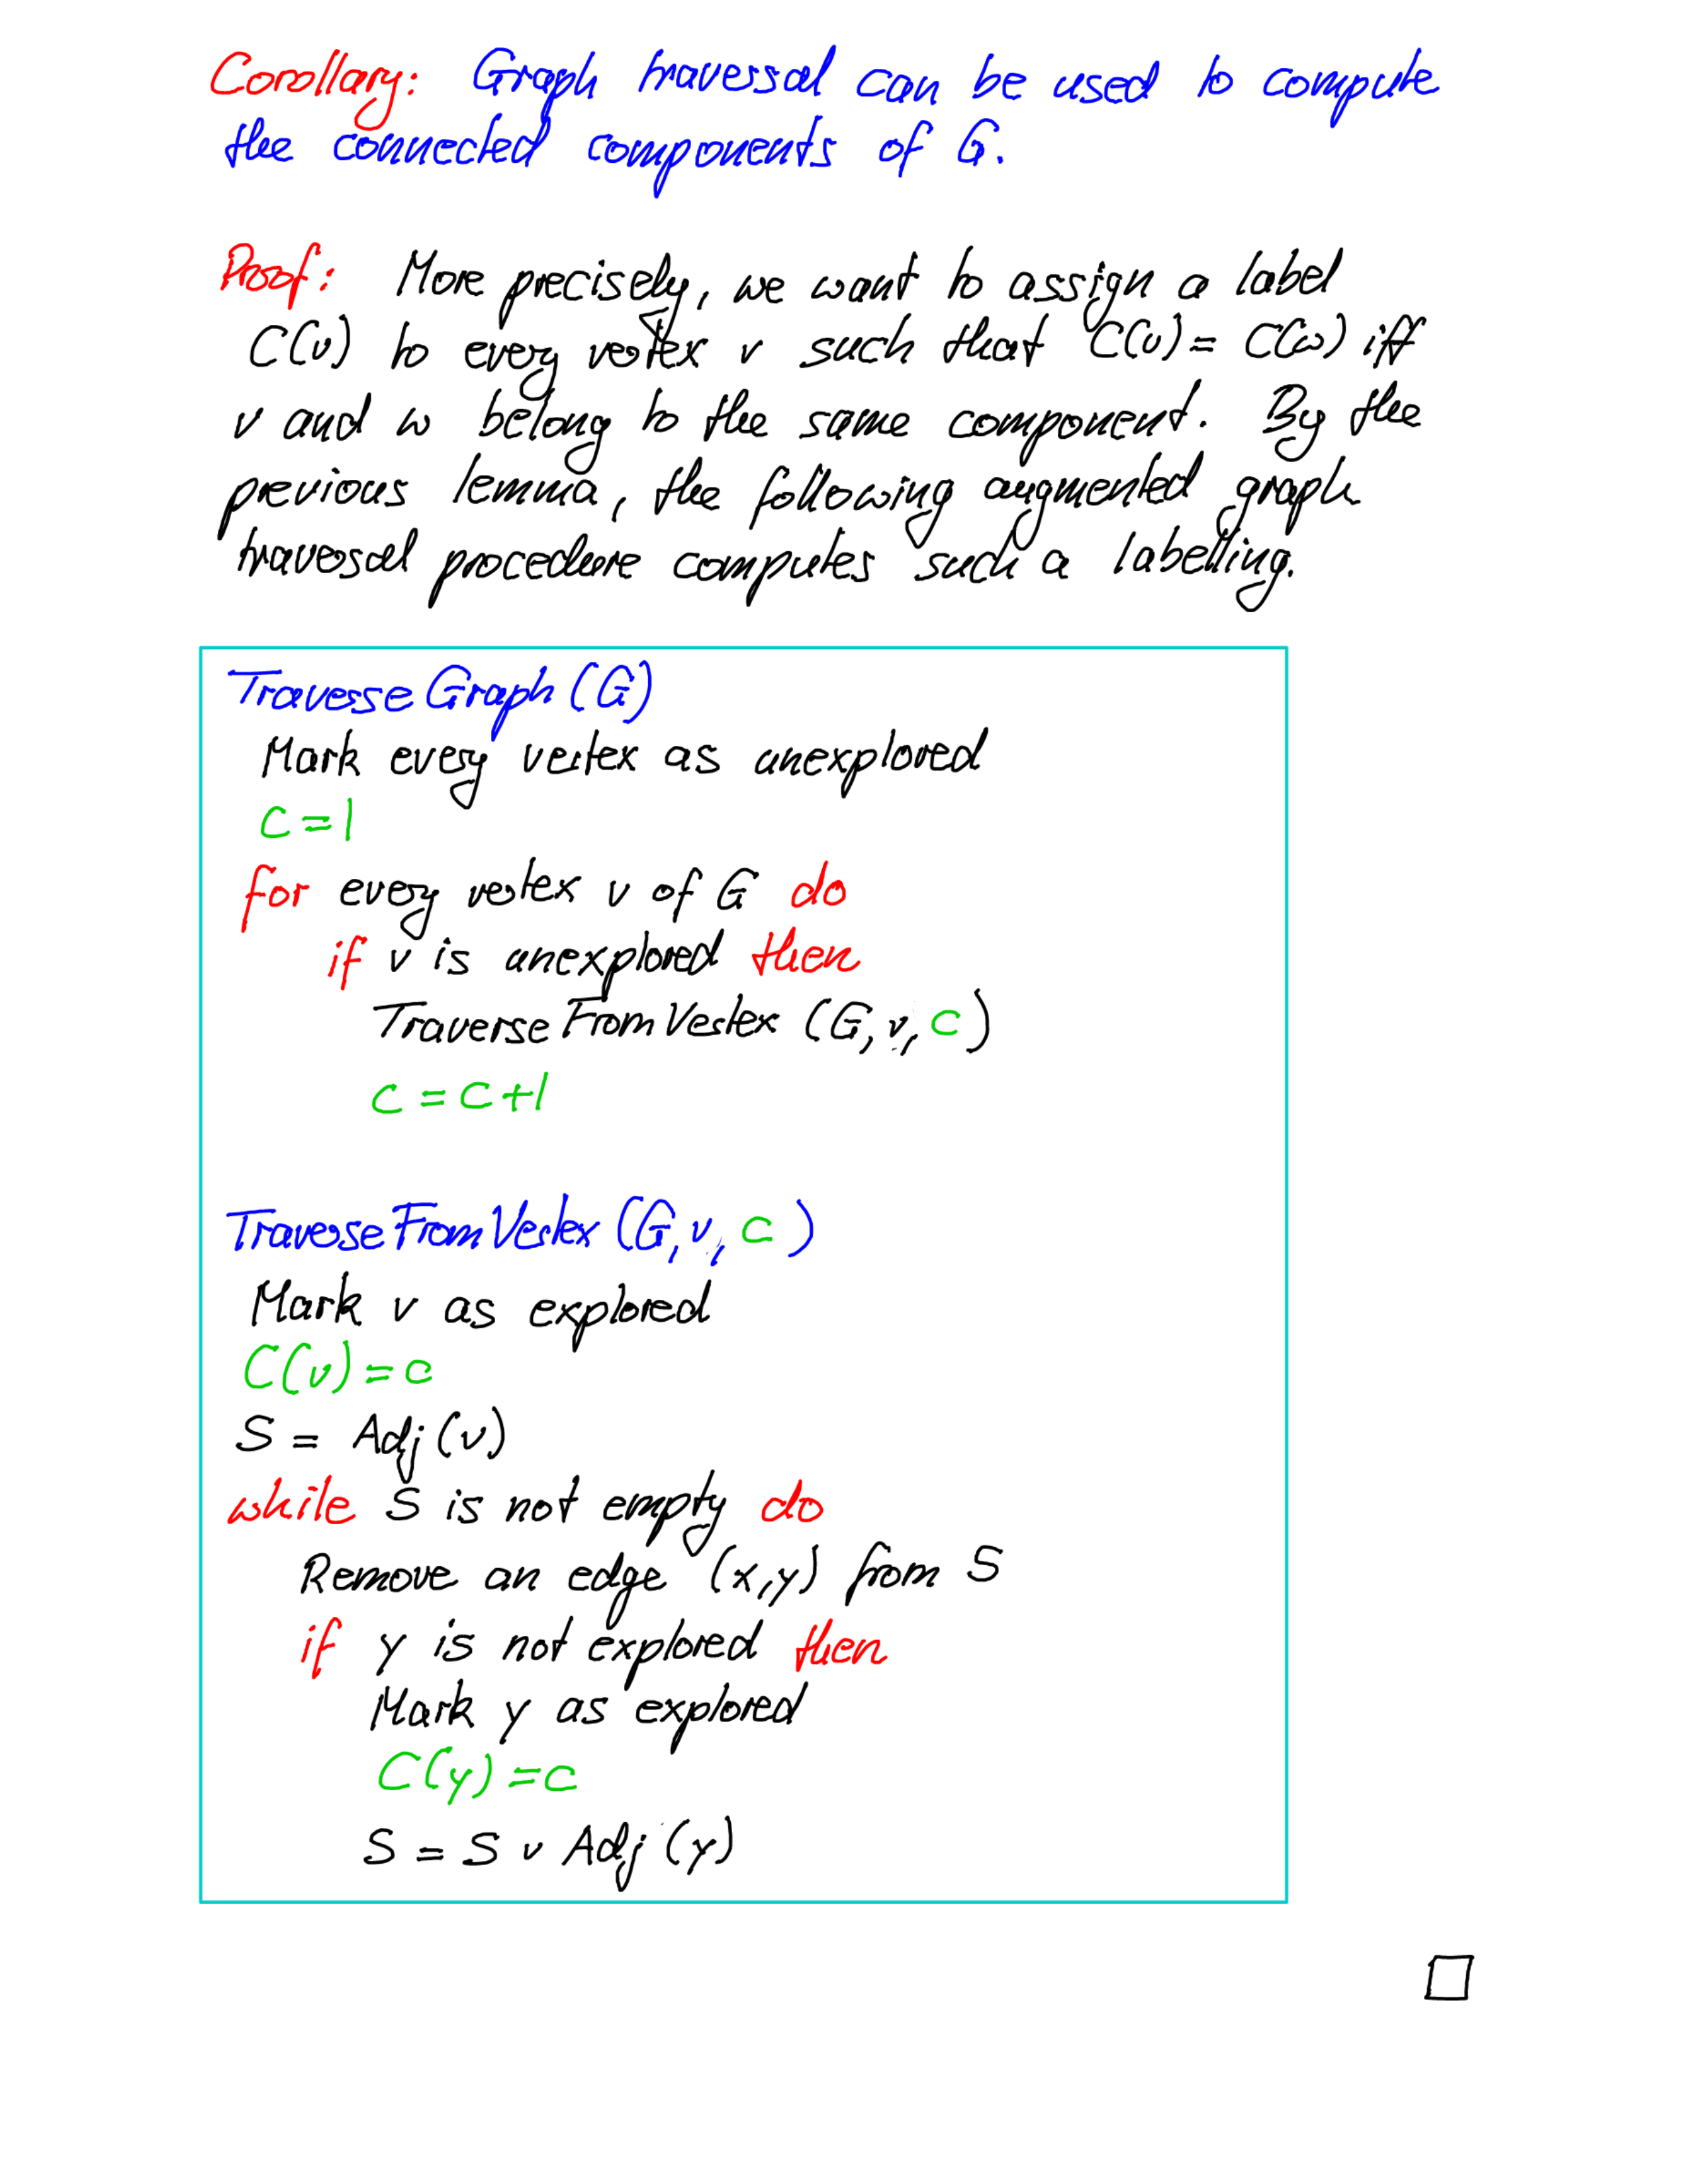 Corollary: Graph traversal can be used to compute
the connected components of G.
Proof: More precisely, we want to assign a label
C(v) to every vertex v such that C(v) = C(w) iff
v and w belong to the same component. By the
previous lemma, the following augmented graph
traversal procedure computes such a labelling.
TraverseGraph (G)
Mark every vertex as unexplored
c = 1
for every vertex v of G do
if v is unexplored then
TraverseFromVertex (G, v, c)
c = c + 1
TraverseFromVertex (G, v, c)
Mark v as explored
C(v) = c
S = Adj (v)
while S is not empty do
Remove an edge (x,y) from S
if y is not explored then
Mark y as explored
C(y) = c
S = S ∪ Adj (y)